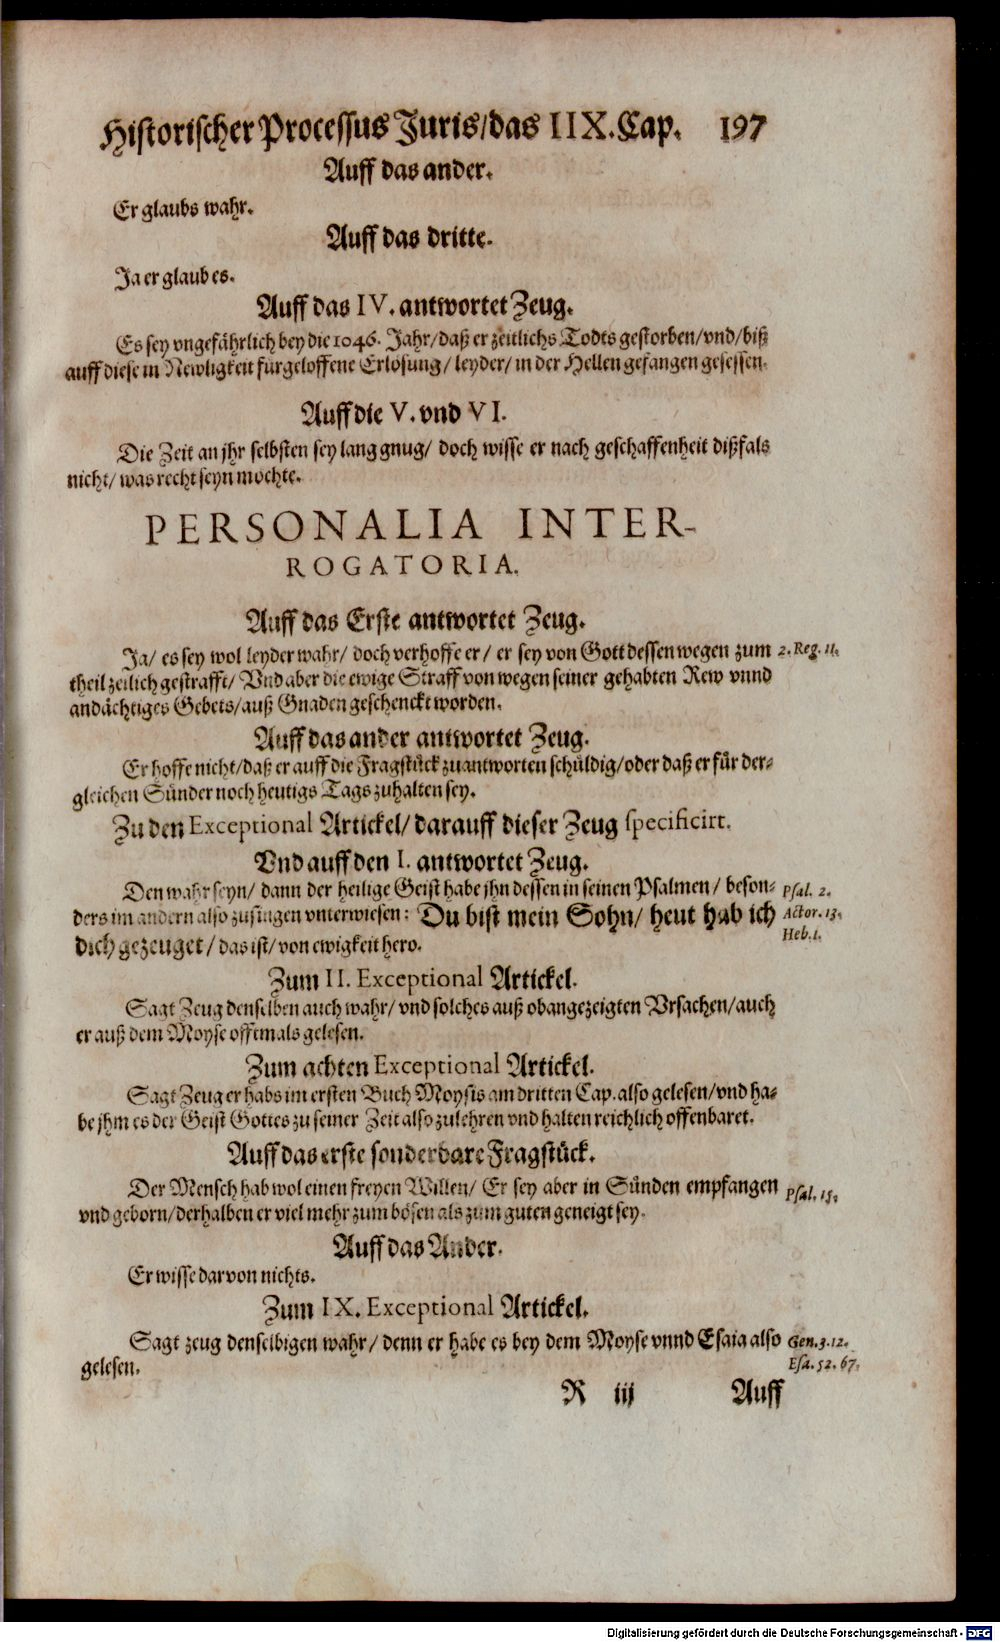 Historischer Processus Juris/das IIX.Cap. 197
Auff das ander.
Er glaubs wahr.
Auff das dritte.
Ja er glaub es.
Auff das IV. antwortet Zeug.
Es sey vngefährlich bey die 1046. Jahr/daß er zeitlichs Todts gestorben/vnd/biß
auff diese in Newligkeit fürgeloffene Erlösung/ leyder/ in der Hellen gefangen gesessen.
Auff die V. vnd VI.
Die Zeit an jhr selbsten sey lang gnug/ doch wisse er nach geschaffenheit dißfals
nicht/ was recht seyn möchte.
PERSONALIA INTER-
ROGATORIA.
Auff das Erste antwortet Zeug.
Ja/ es sey wol leyder wahr/ doch verhoffe er/ er sey von Gott dessen wegen zum 2. Reg. 11.
theil zeilich gestrafft/ Vnd aber die ewige Straff von wegen seiner gehabten Rew vnnd
andächtiges Gebets/auß Gnaden geschenckt worden.
Auff das ander antwortet Zeug.
Er hoffe nicht/daß er auff die Fragstück zuantworten schüldig/oder daß er für der-
gleichen Sünder noch heutigs Tags zuhalten sey.
Zu den Exceptional Artickel/ darauff dieser Zeug specificirt.
Vnd auff den I. antwortet Zeug.
Den wahr seyn/ dann der heilige Geist habe jhn dessen in seinen Psalmen/ beson- Psal. 2.
ders im andern also zusingen vnterwiesen: Du bist mein Sohn/ heut hab ich Actor. 13.
dich gezeuget/ das ist/ von ewigkeit hero. Heb. 1.
Zum II. Exceptional Artickel.
Sagt Zeug denselben auch wahr/ vnd solches auß obangezeigten Vrsachen/auch
er auß dem Moyse offtmals gelesen.
Zum achten Exceptional Artickel.
Sagt Zeug er habs im ersten Buch Moysis am dritten Cap. also gelesen/vnd ha-
be jhm es der Geist Gottes zu seiner Zeit also zulehren vnd halten reichlich offenbaret.
Auff das erste sonderbare Fragstück.
Der Mensch hab wol einen freyen Willen/ Er sey aber in Sünden empfangen Psal. 15.
vnd geborn/derhalben er viel mehr zum bösen als zum guten geneigt sey.
Auff das Ander.
Er wisse darvon nichts.
Zum IX. Exceptional Artickel.
Sagt zeug denselbigen wahr/ denn er habe es bey dem Moyse vnnd Esaia also Gen. 3. 12.
gelesen. Esa. 52. 67.
R iij Auff
Digitalisierung gefördert durch die Deutsche Forschungsgemeinschaft - DFG